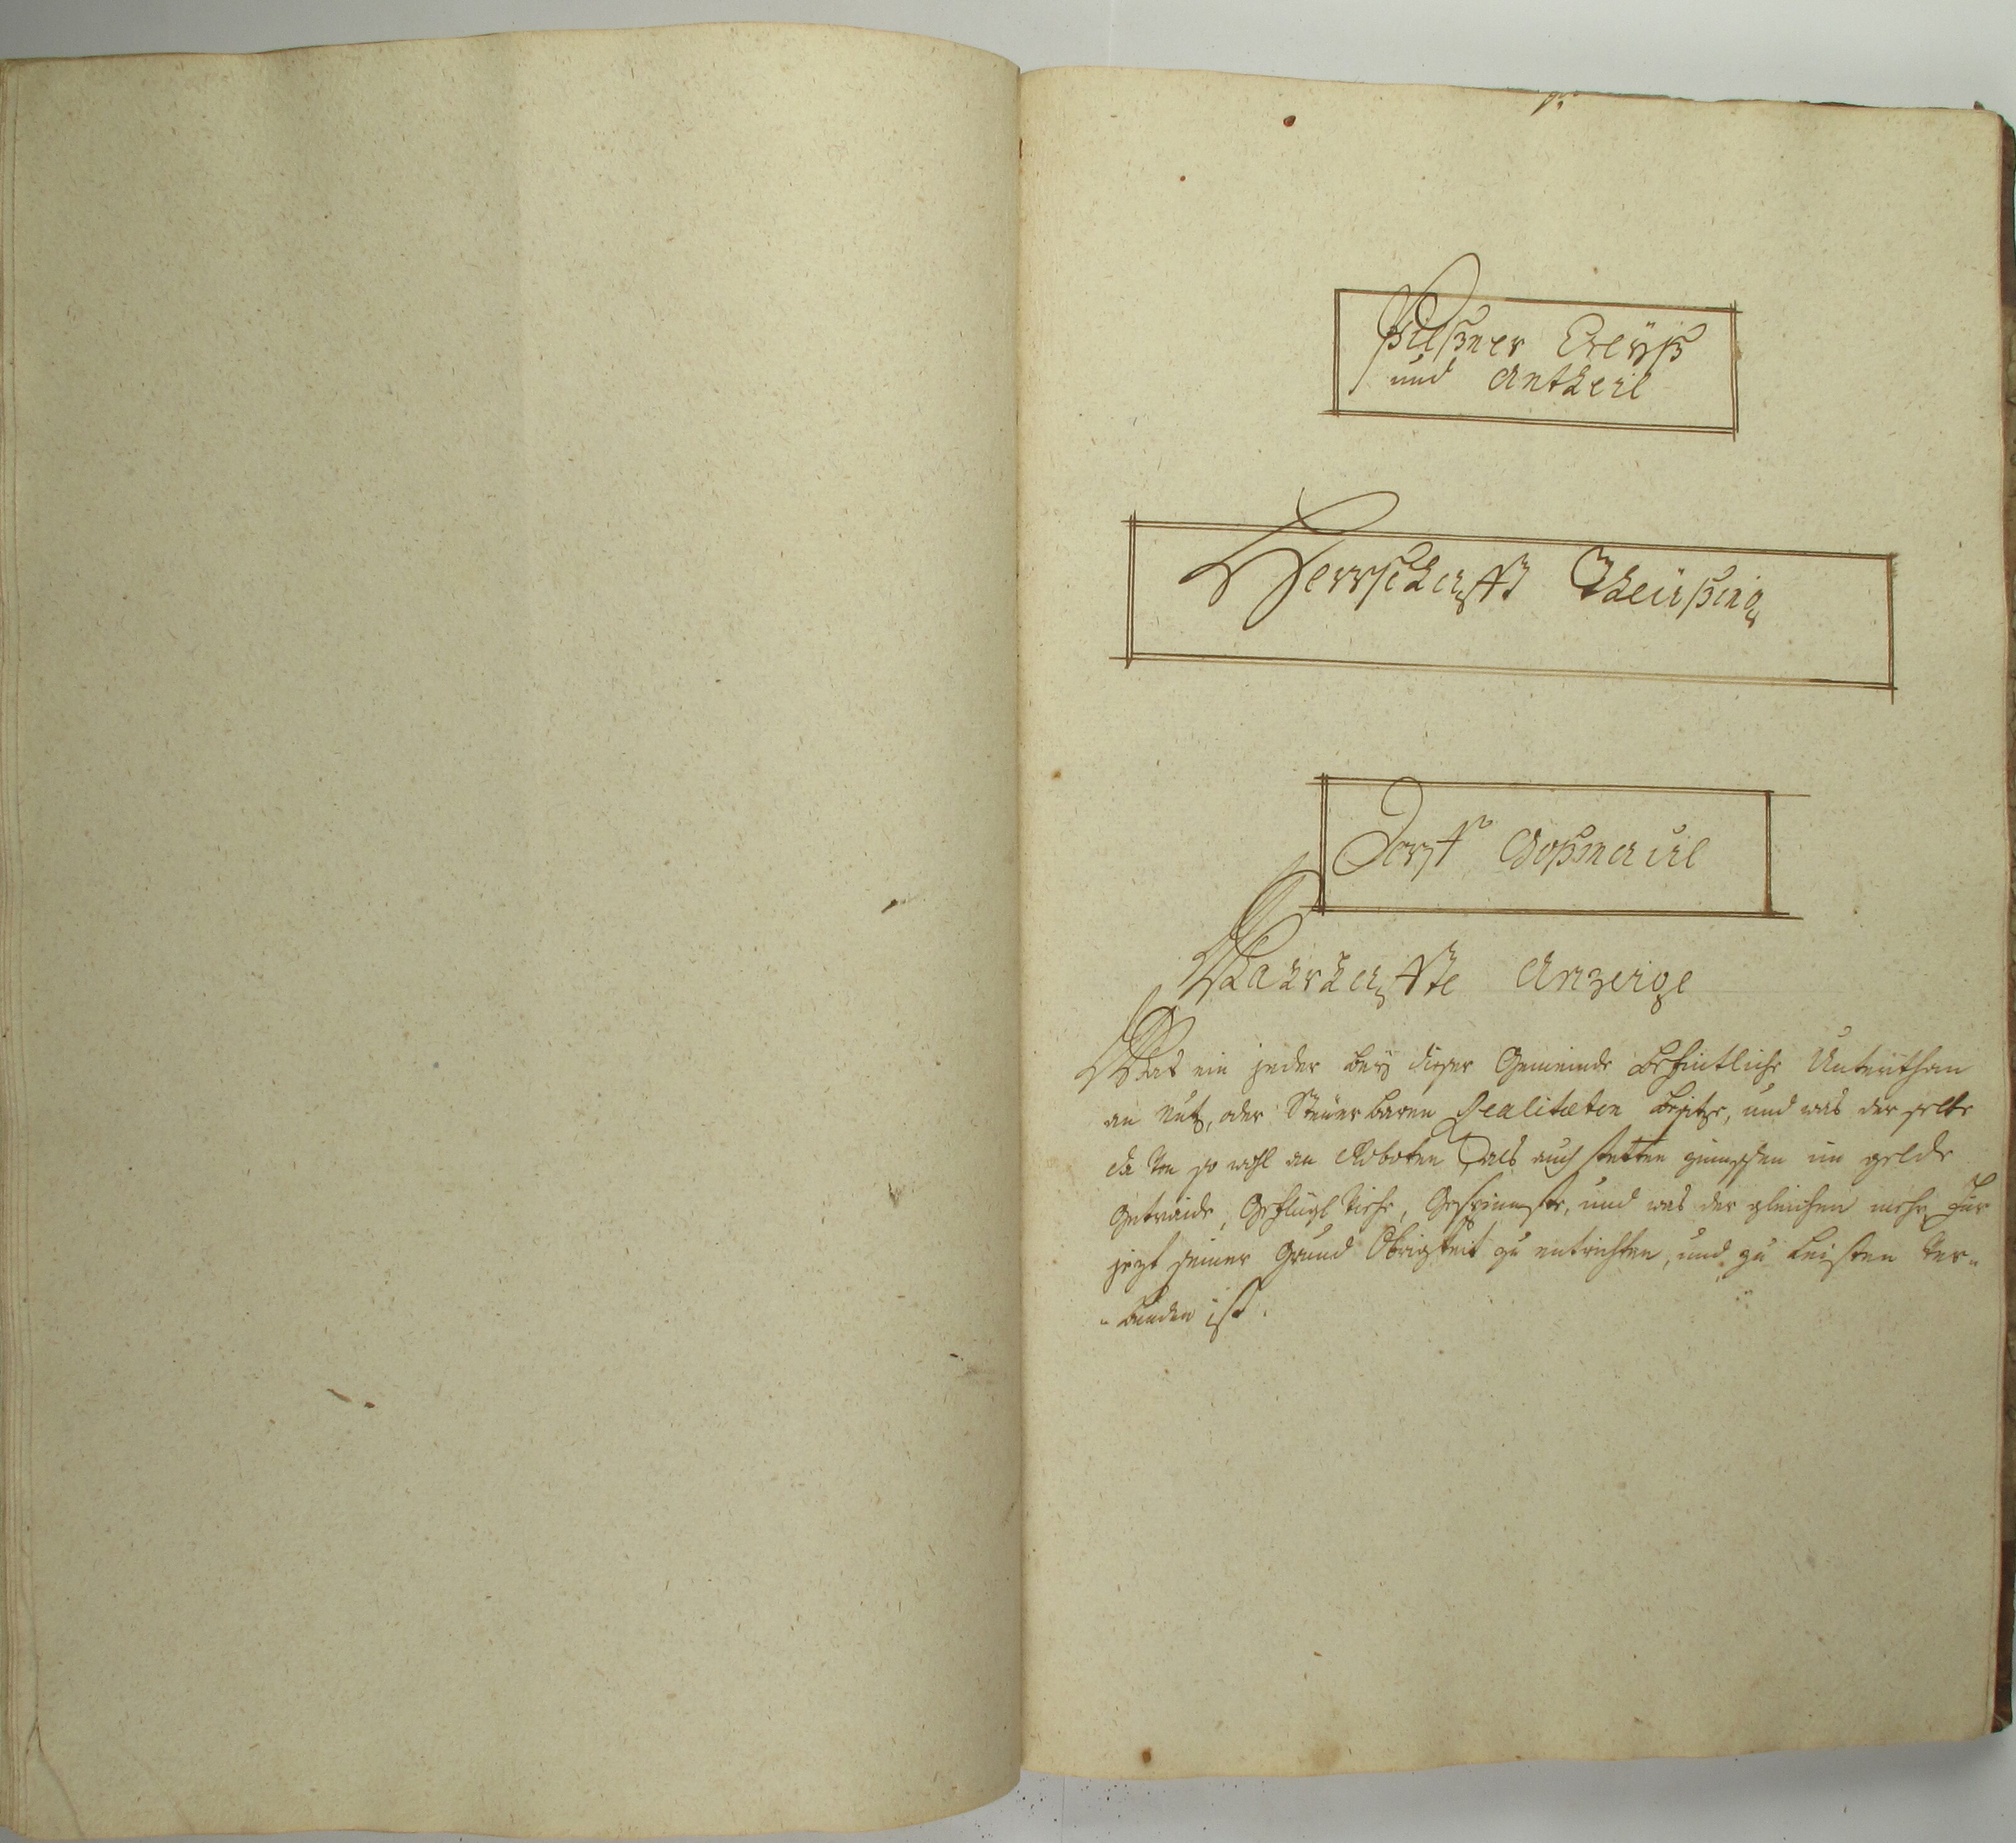 Pilßner Creÿß
und Antheil
Herrschafft Theüßing
Dorf Goßmaul
Wahrhaffte Anzeige
Was ein jeder beÿ dieser Gemeinde befintliche Unterthan
an Nutz, oder Steüerbaren Realitæten besitze, und was derselbe
da von so wohl an Roboten als auch stetten zinnßen im gelde
Getraide, Geflügl Viehe, Gespinnste, und was der gleichen mehr Für
jezt seiner Grund Obrigkeit zu entrichten, und zu Leisten ver„
„bunden ist.